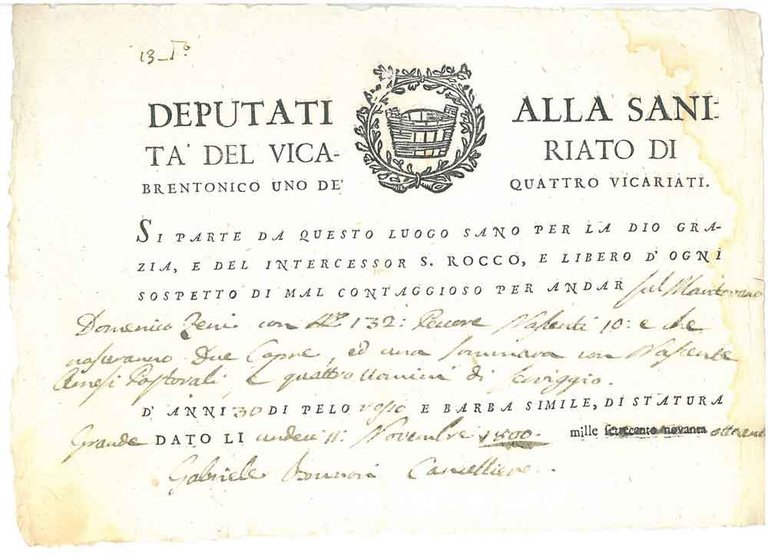 13_
DEPUTATI ALLA SANI-
TA' DEL VICA- RIATO DI
BRENTONICO UNO DE' QUATTRO VICARIATI.
SI PARTE DA QUESTO LUOGO SANO PER LA DIO GRA-
ZIA, E DEL INTERCESSOR S. ROCCO, E LIBERO D'OGNI
SOSPETTO DI MAL CONTAGGIOSO PER ANDAR sul Mantovano
Domenico Zeni con N.º 132: Pecore Nascenti 10: e che
nasceranno Due Capre, ed una Sommara con Nascente
Arnesi Pastorali, e quattro Uomini di Serviggio.
D' ANNI 30 DI PELO rosso E BARBA SIMILE, DI STATURA
Grande DATO LI undeci 11: Novembre 1800. mille settecento novanta
Gabriele Cancelliere.